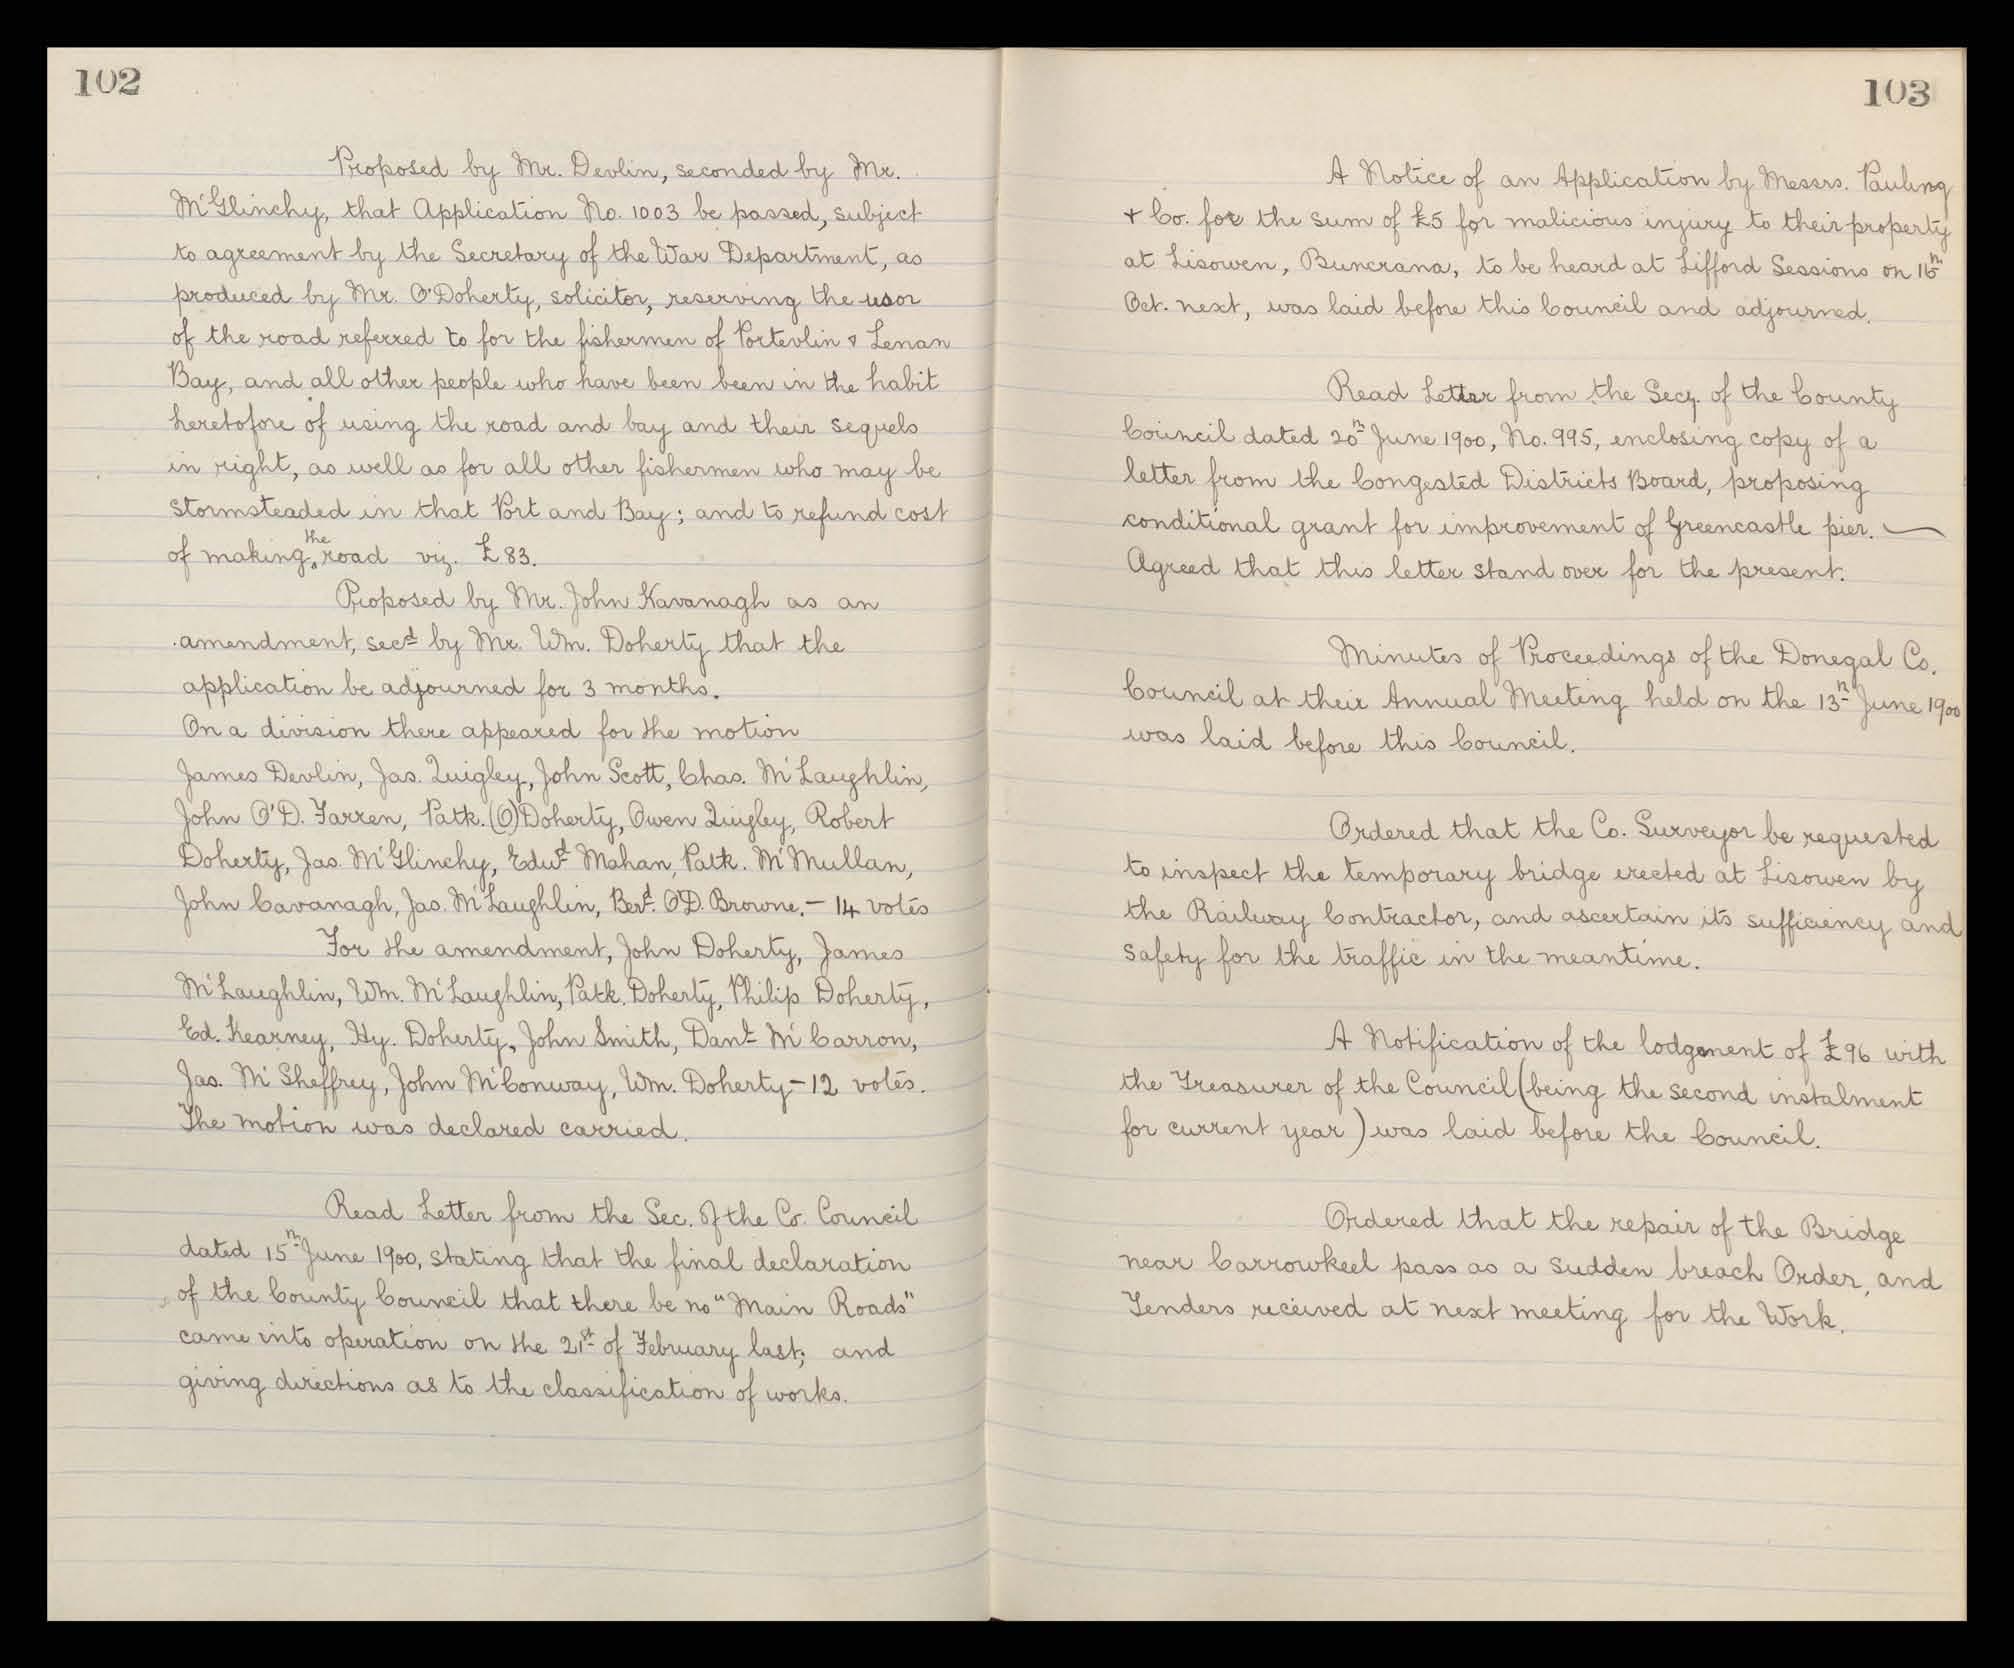 102
Proposed by Mr. Devlin, seconded by Mr.
McGlinchy, that Application No. 1003 be passed, subject
to agreement by the Secretary of the War Department, as
produced by Mr. O'Doherty, solicitor, reserving the
of the road referred to for the fishermen of Portevlin & Lenan
Bay, and all other people who have been been in the habit
heretofore of using the road and bay and their sequels
in right, as well as for all other fishermen who may be
stormsteaded in that Port and Bay; and to refund cost
of making the road viz. £83.
Proposed by Mr. John Kavanagh as an
amendment, secd by Mr. Wm. Doherty that the
application be adjourned for 3 months.
On a division there appeared for the motion
James Devlin, Jas. Quigley, John Scott, Chas. McLaughlin,
John O'D. Farren, Patk. (O)Doherty, Owen Quigley, Robert
Doherty, Jas. McGlinchy, Edwd Mahan, Patk. McMullan,
John Cavanagh, Jas. McLaughlin, Berd. O'D. Browne. — 14 votes
For the amendment, John Doherty, James
McLaughlin, Wm. McLaughlin, Patk. Doherty, Philip Doherty,
Ed. Kearney, Hy. Doherty, John Smith, Danl McCarron,
Jas. McSheffrey, John McConway, Wm. Doherty — 12 votes.
The motion was declared carried.
Read Letter from the Sec. of the Co. Council
dated 15th June 1900, stating that the final declaration
of the County Council that there be no "Main Roads"
came into operation on the 21st of February last; and
giving directions as to the classification of works.
103
A Notice of an Application by Messrs. Pauling
& Co. for the sum of £5 for malicious injury to their property
at Lisowen, Buncrana, to be heard at Lifford Sessions on
Oct. next, was laid before this Council and adjourned.
Read Letter from the Secy. of the County
Council dated 20th June 1900, No. 995, enclosing copy of a
letter from the Congested Districts Board, proposing
conditional grant for improvement of Greencastle pier. —
Agreed that this letter stand over for the present.
Minutes of Proceedings of the Donegal Co.
Council at their Annual Meeting held on the 13th June 1900
was laid before this Council.
Ordered that the Co. Surveyor be requested
to inspect the temporary bridge erected at Lisowen by
the Railway Contractor, and ascertain its sufficiency and
safety for the traffic in the meantime.
A Notification of the lodgement of £96 with
the Treasurer of the Council (being the second instalment
for current year) was laid before the Council.
Ordered that the repair of the Bridge
near Carrowkeel pass as a sudden breach Order, and
Tenders received at next meeting for the Work.